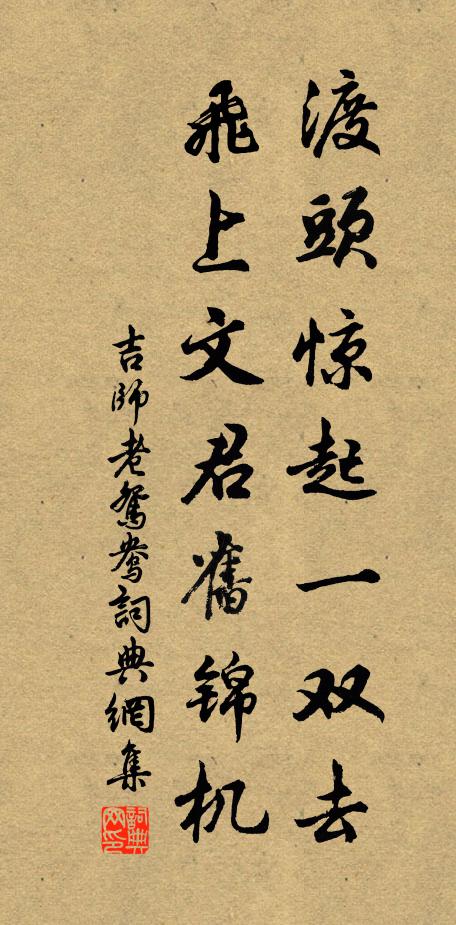 渡頭惊起一双去
飛上文君舊锦机
吉師老鴛鴦詞典網集
詞典网印